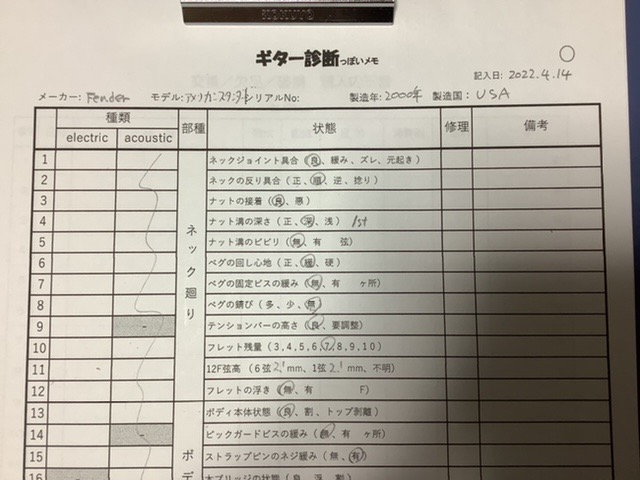 ギター診断っぽいメモ
記入日: 2022.4.14
メーカー: Fender モデル: アメリカンスタンダード シリアルNo: 製造年: 2000年 製造国: USA
種類 部種 状態 修理 備考
electric acoustic
ネック廻り
1 ネックジョイント具合 (良、緩み、ズレ、元起き)
2 ネックの反り具合 (正、順、逆、捻り)
3 ナットの接着 (良、悪)
4 ナット溝の深さ (正、深、浅) 1st
5 ナット溝のビビリ (無、有 弦)
6 ペグの回し心地 (正、緩、硬)
7 ペグの固定ビスの緩み (無、有 ヶ所)
8 ペグの錆び (多、少、無)
9 テンションバーの高さ (良、要調整)
10 フレット残量 (3,4,5,6,7,8,9,10)
11 12F弦高 (6弦 2.1mm、1弦 2.1mm、不明)
12 フレットの浮き (無、有 F)
ボデ
13 ボディ本体状態 (良、割、トップ剥離)
14 ピックガードビスの緩み (無、有 ヶ所)
15 ストラップピンのネジ緩み (無、有)
16 木ブリッジの状態 (良、浮、割)